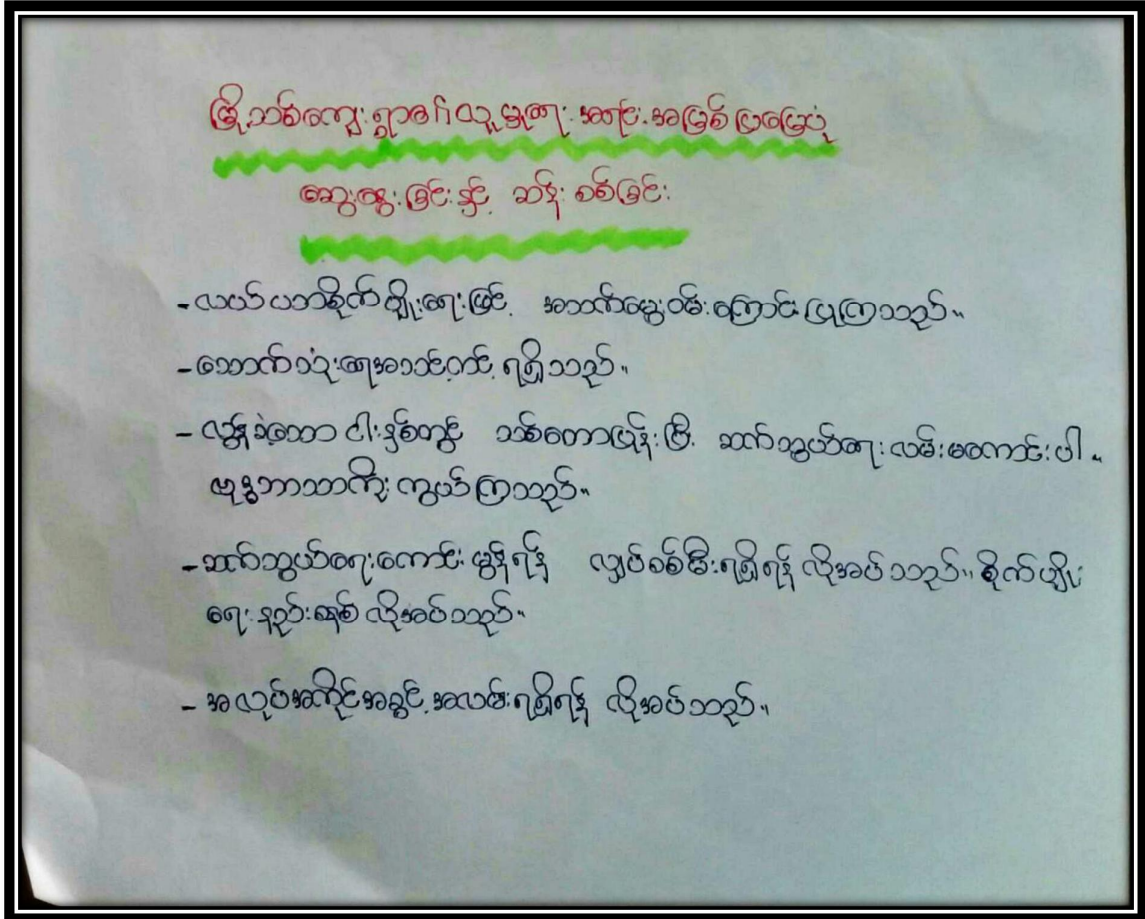 မြို့သစ်ကျေးရွာ၏လူမှုရေး အရင်းအမြစ်ပြမြေပုံ
ဆွေးနွေးခြင်းနှင့် ဆန်းစစ်ခြင်း
-လယ်ယာစိုက်ပျိုးရေးဖြင့် အသက်မွေးဝမ်းကြောင်းပြုကြသည်။
-သောက်သုံးရေအသင့်တင့်ရရှိသည်။
-လွန်ခဲ့သော ငါးနှစ်တွင် သစ်တောပြုန်းပြီး ဆက်သွယ်ရေးလမ်းမကောင်းပါ။
ဗုဒ္ဓဘာသာကိုးကွယ်ကြသည်။
-ဆက်သွယ်ရေးကောင်းမွန်ရန် လျှပ်စစ်မီးရရှိရန် လိုအပ်သည်။ စိုက်ပျိုး
ရေးနည်းစနစ် လိုအပ်သည်။
-အလုပ်အကိုင်အခွင့်အလမ်းရရှိရန် လိုအပ်သည်။